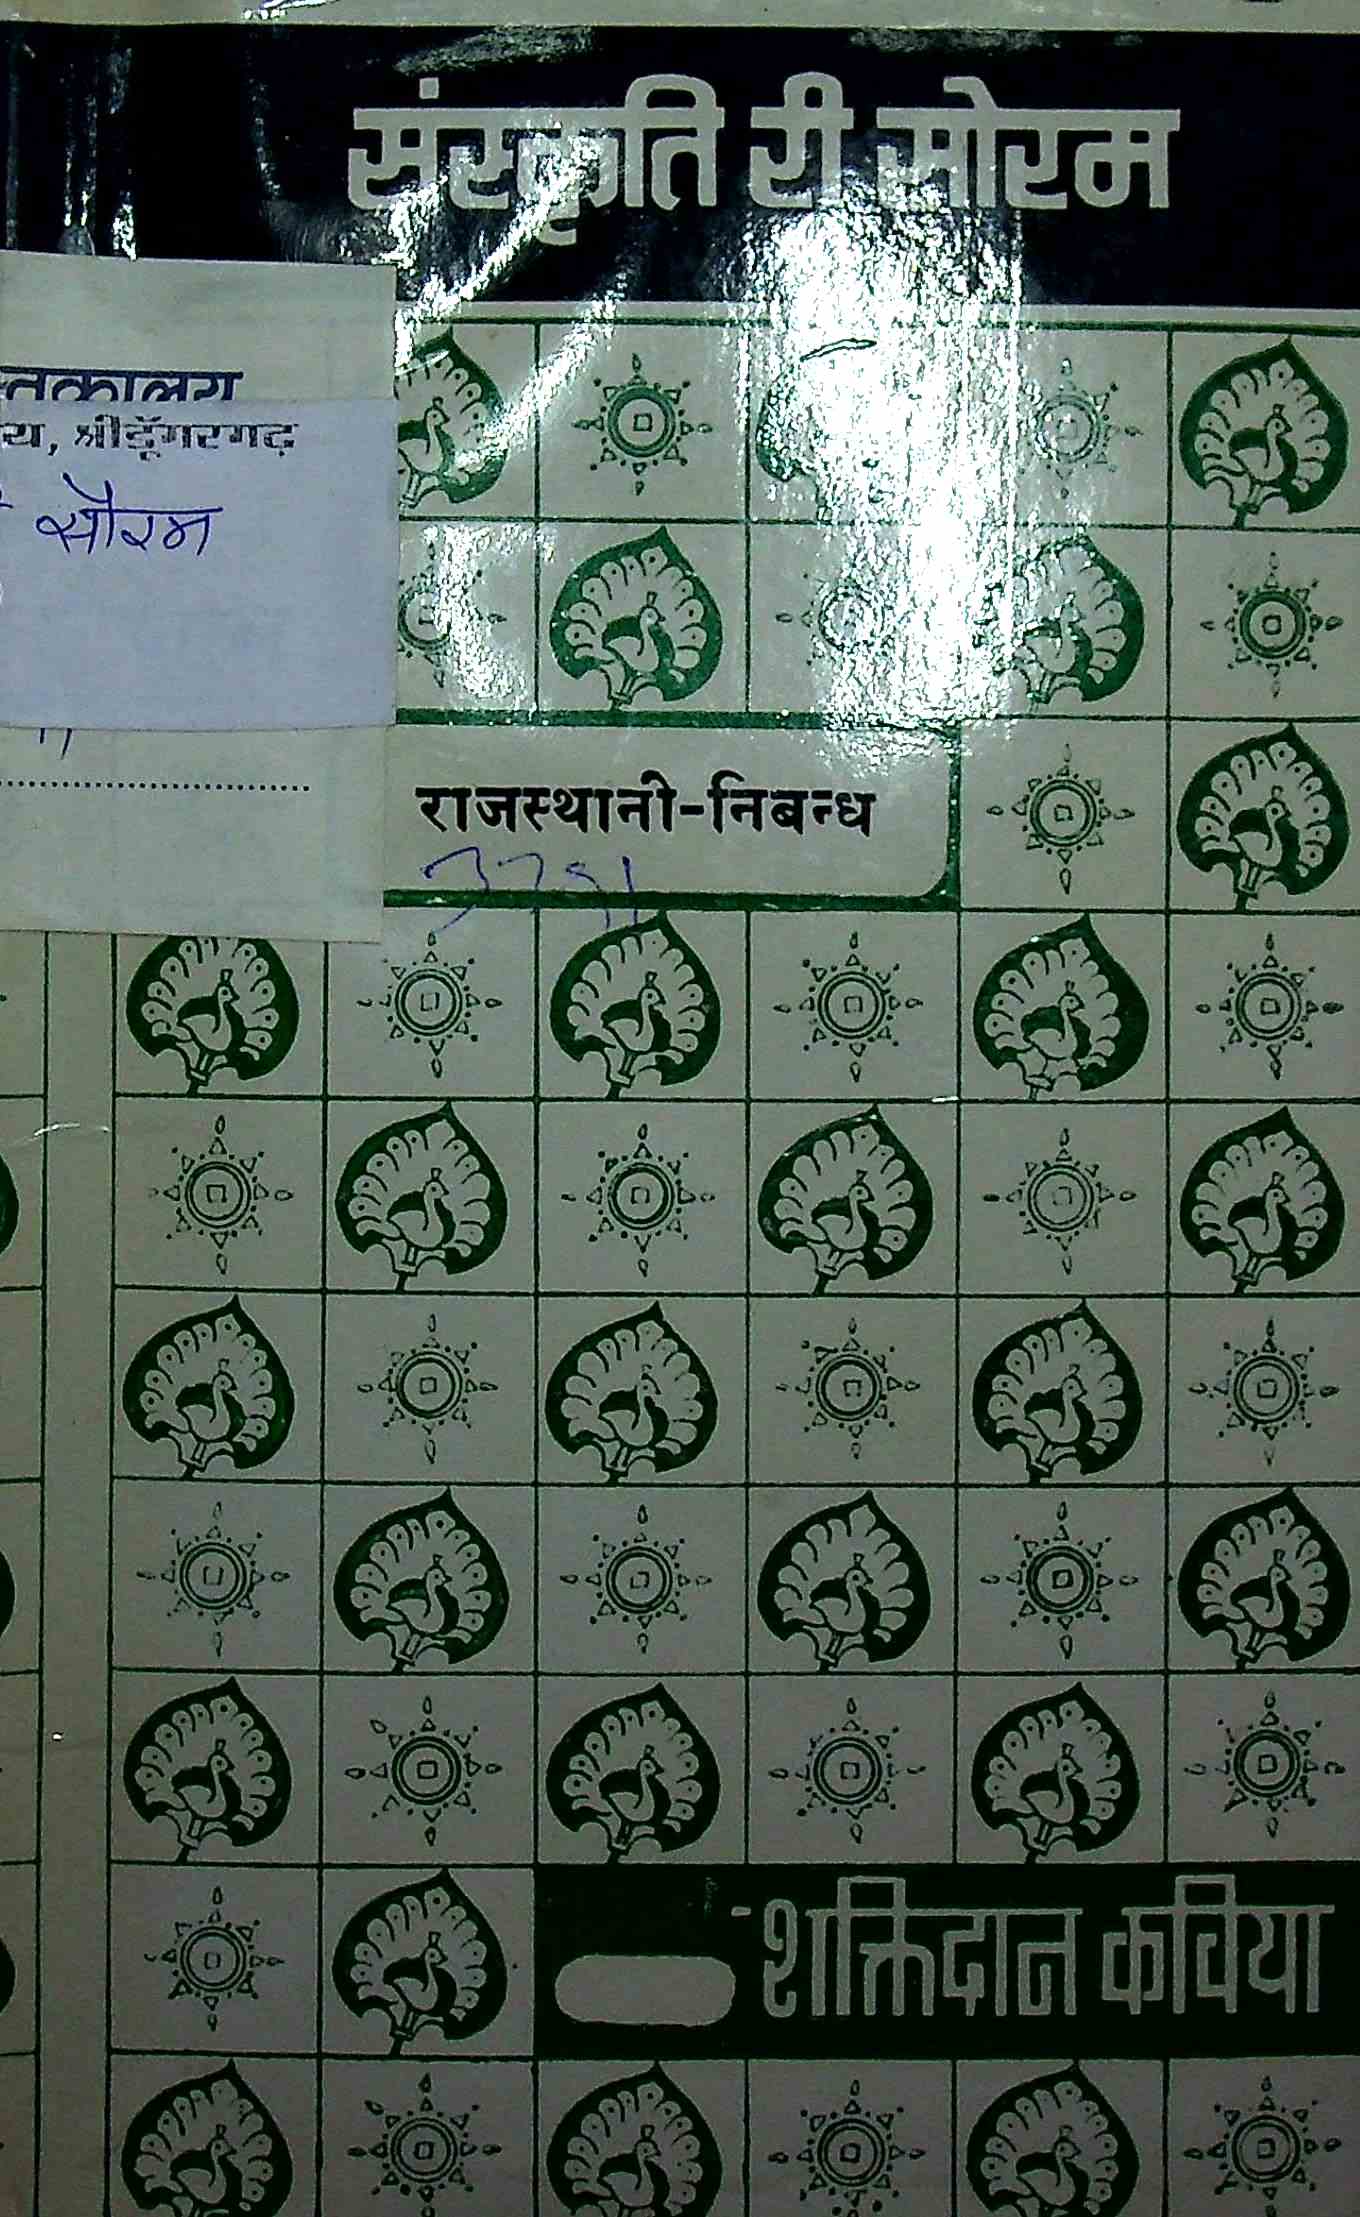 संस्कृति री सोरम
तकालय
य, श्रीडूँगरगढ़
सौरम
राजस्थानी-निबन्ध
शक्तिदान कविया